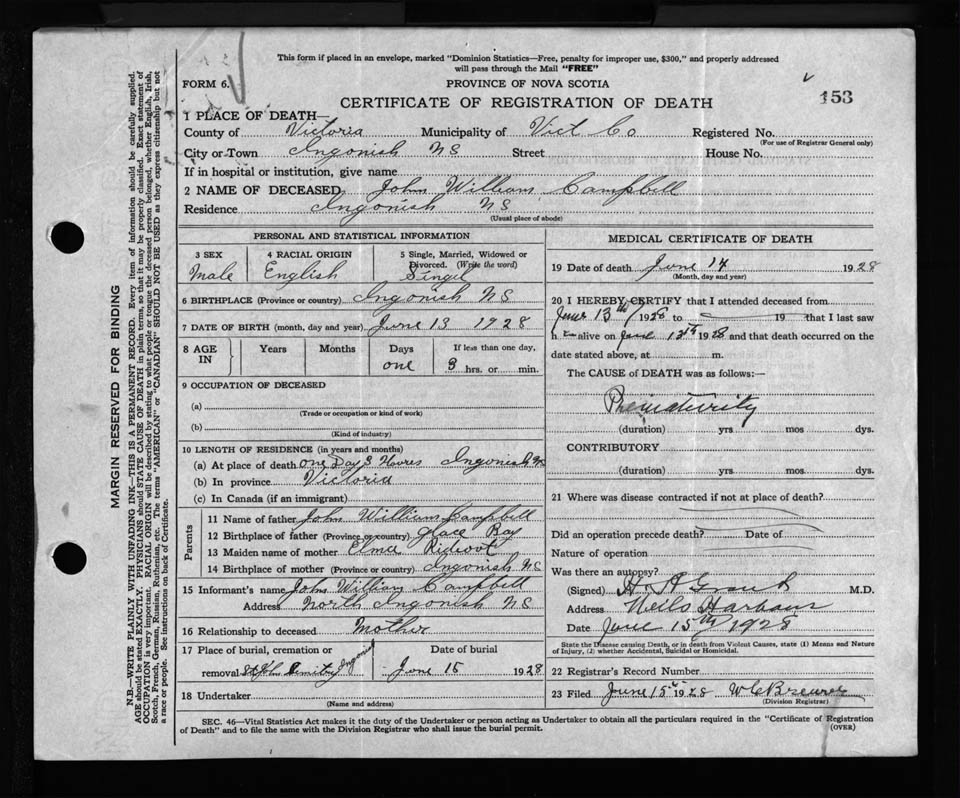 This form if placed in an envelope, marked "Dominion Statistics—Free, penalty for improper use, $300," and properly addressed
will pass through the Mail "FREE"
FORM 6.
PROVINCE OF NOVA SCOTIA
CERTIFICATE OF REGISTRATION OF DEATH
153
1 PLACE OF DEATH—
County of Victoria Municipality of Vict Co Registered No.
(For use of Registrar General only)
City or Town Ingonish NS Street House No.
If in hospital or institution, give name
2 NAME OF DECEASED John William Campbell
Residence Ingonish NS
(Usual place of abode)
PERSONAL AND STATISTICAL INFORMATION
3 SEX 4 RACIAL ORIGIN 5 Single, Married, Widowed or Divorced. (Write the word)
Male English Singel
6 BIRTHPLACE (Province or country) Ingonish NS
7 DATE OF BIRTH (month, day and year) June 13 1928
8 AGE IN Years Months Days If less than one day,
one 3 hrs. or min.
9 OCCUPATION OF DECEASED
(a)
(Trade or occupation or kind of work)
(b)
(Kind of industry)
10 LENGTH OF RESIDENCE (in years and months)
(a) At place of death one Day 3 Howres Ingonish NS
(b) In province Victoria
(c) In Canada (if an immigrant)
Parents
11 Name of father John William Campbell
12 Birthplace of father (Province or country) Glace Bay
13 Maiden name of mother Elma
14 Birthplace of mother (Province or country) Ingonish NS
15 Informant's name John William Campbell
Address North Ingonish NS
16 Relationship to deceased Mother
17 Place of burial, cremation or Date of burial
removal Ingonish June 15 1928
18 Undertaker
(Name and address)
MEDICAL CERTIFICATE OF DEATH
19 Date of death June 14 1928
(Month, day and year)
20 I HEREBY CERTIFY that I attended deceased from
June 13th 1928 to 19 that I last saw
h alive on June 13th 1928 and that death occurred on the
date stated above, at m.
The CAUSE of DEATH was as follows:—
Prematurity
(duration) yrs mos dys.
CONTRIBUTORY
(duration) yrs mos dys.
21 Where was disease contracted if not at place of death?
Did an operation precede death? Date of
Nature of operation
Was there an autopsy?
(Signed) M.D.
Address Neils Harbour
Date June 15th 1928
State the Disease causing Death, or in death from Violent Causes, state (1) Means and Nature
of Injury, (2) whether Accidental, Suicidal or Homicidal.
22 Registrar's Record Number
23 Filed June 15 1928
(Division Registrar)
SEC. 46—Vital Statistics Act makes it the duty of the Undertaker or person acting as Undertaker to obtain all the particulars required in the "Certificate of Registration
of Death" and to file the same with the Division Registrar who shall issue the burial permit.
(OVER)
MARGIN RESERVED FOR BINDING
N.B.—WRITE PLAINLY WITH UNFADING INK—THIS IS A PERMANENT RECORD. Every item of information should be carefully supplied.
AGE should be stated EXACTLY. PHYSICIANS should STATE CAUSE OF DEATH in plain terms, so that it may be properly classified. Exact statement of
OCCUPATION is very important. RACIAL ORIGIN will be described by stating to what people or tongue the deceased person belonged, whether English, Irish,
Scotch, French, German, Russian, Ruthenian, etc. The terms "AMERICAN" or "CANADIAN" SHOULD NOT BE USED as they express citizenship but not
a race or people. See instructions on back of Certificate.